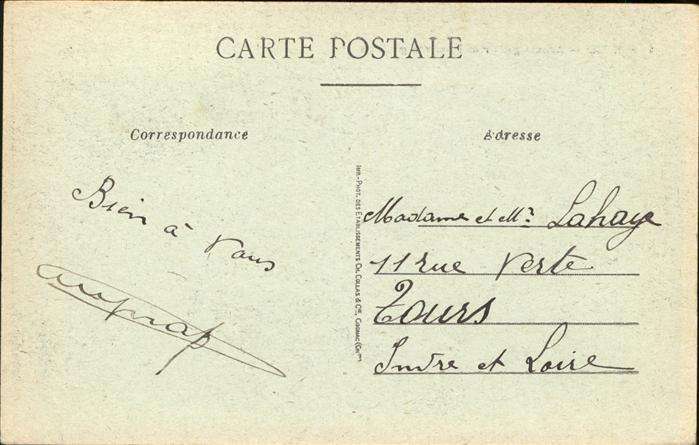 CARTE POSTALE
Correspondance
Adresse
Bien à vous
IMP.-PHOT. DES ETABLISSEMENTS CH. COLLAS & Cie, COGNAC (Chte)
Madame et Mr Lahaye
11 rue Verte
Tours
Indre et Loire